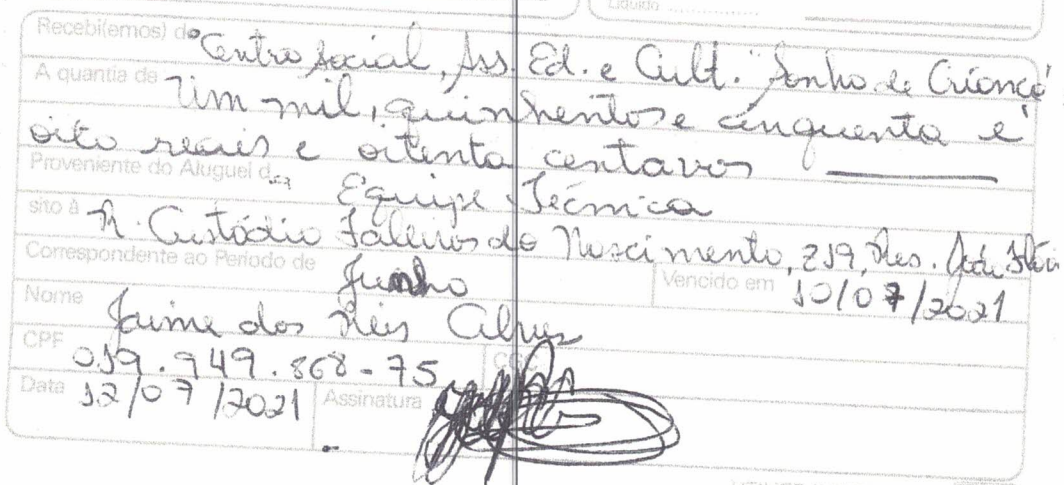 Líquido ..............
Recebi(emos) do Centro Social, Ass. Ed. e Cult. "Sonho de Criança"
A quantia de Um mil, quinhentos e cinquenta e
oito reais e oitenta centavos
Proveniente do Aluguel da Equipe Técnica
sito à R. Custódio Faleiros do Nascimento, 219, Res.
Correspondente ao Período de Junho Vencido em 10/07/2021
Nome Jaime dos Reis Alves
CPF 019.949.868-75
Data 12/07/2021 Assinatura